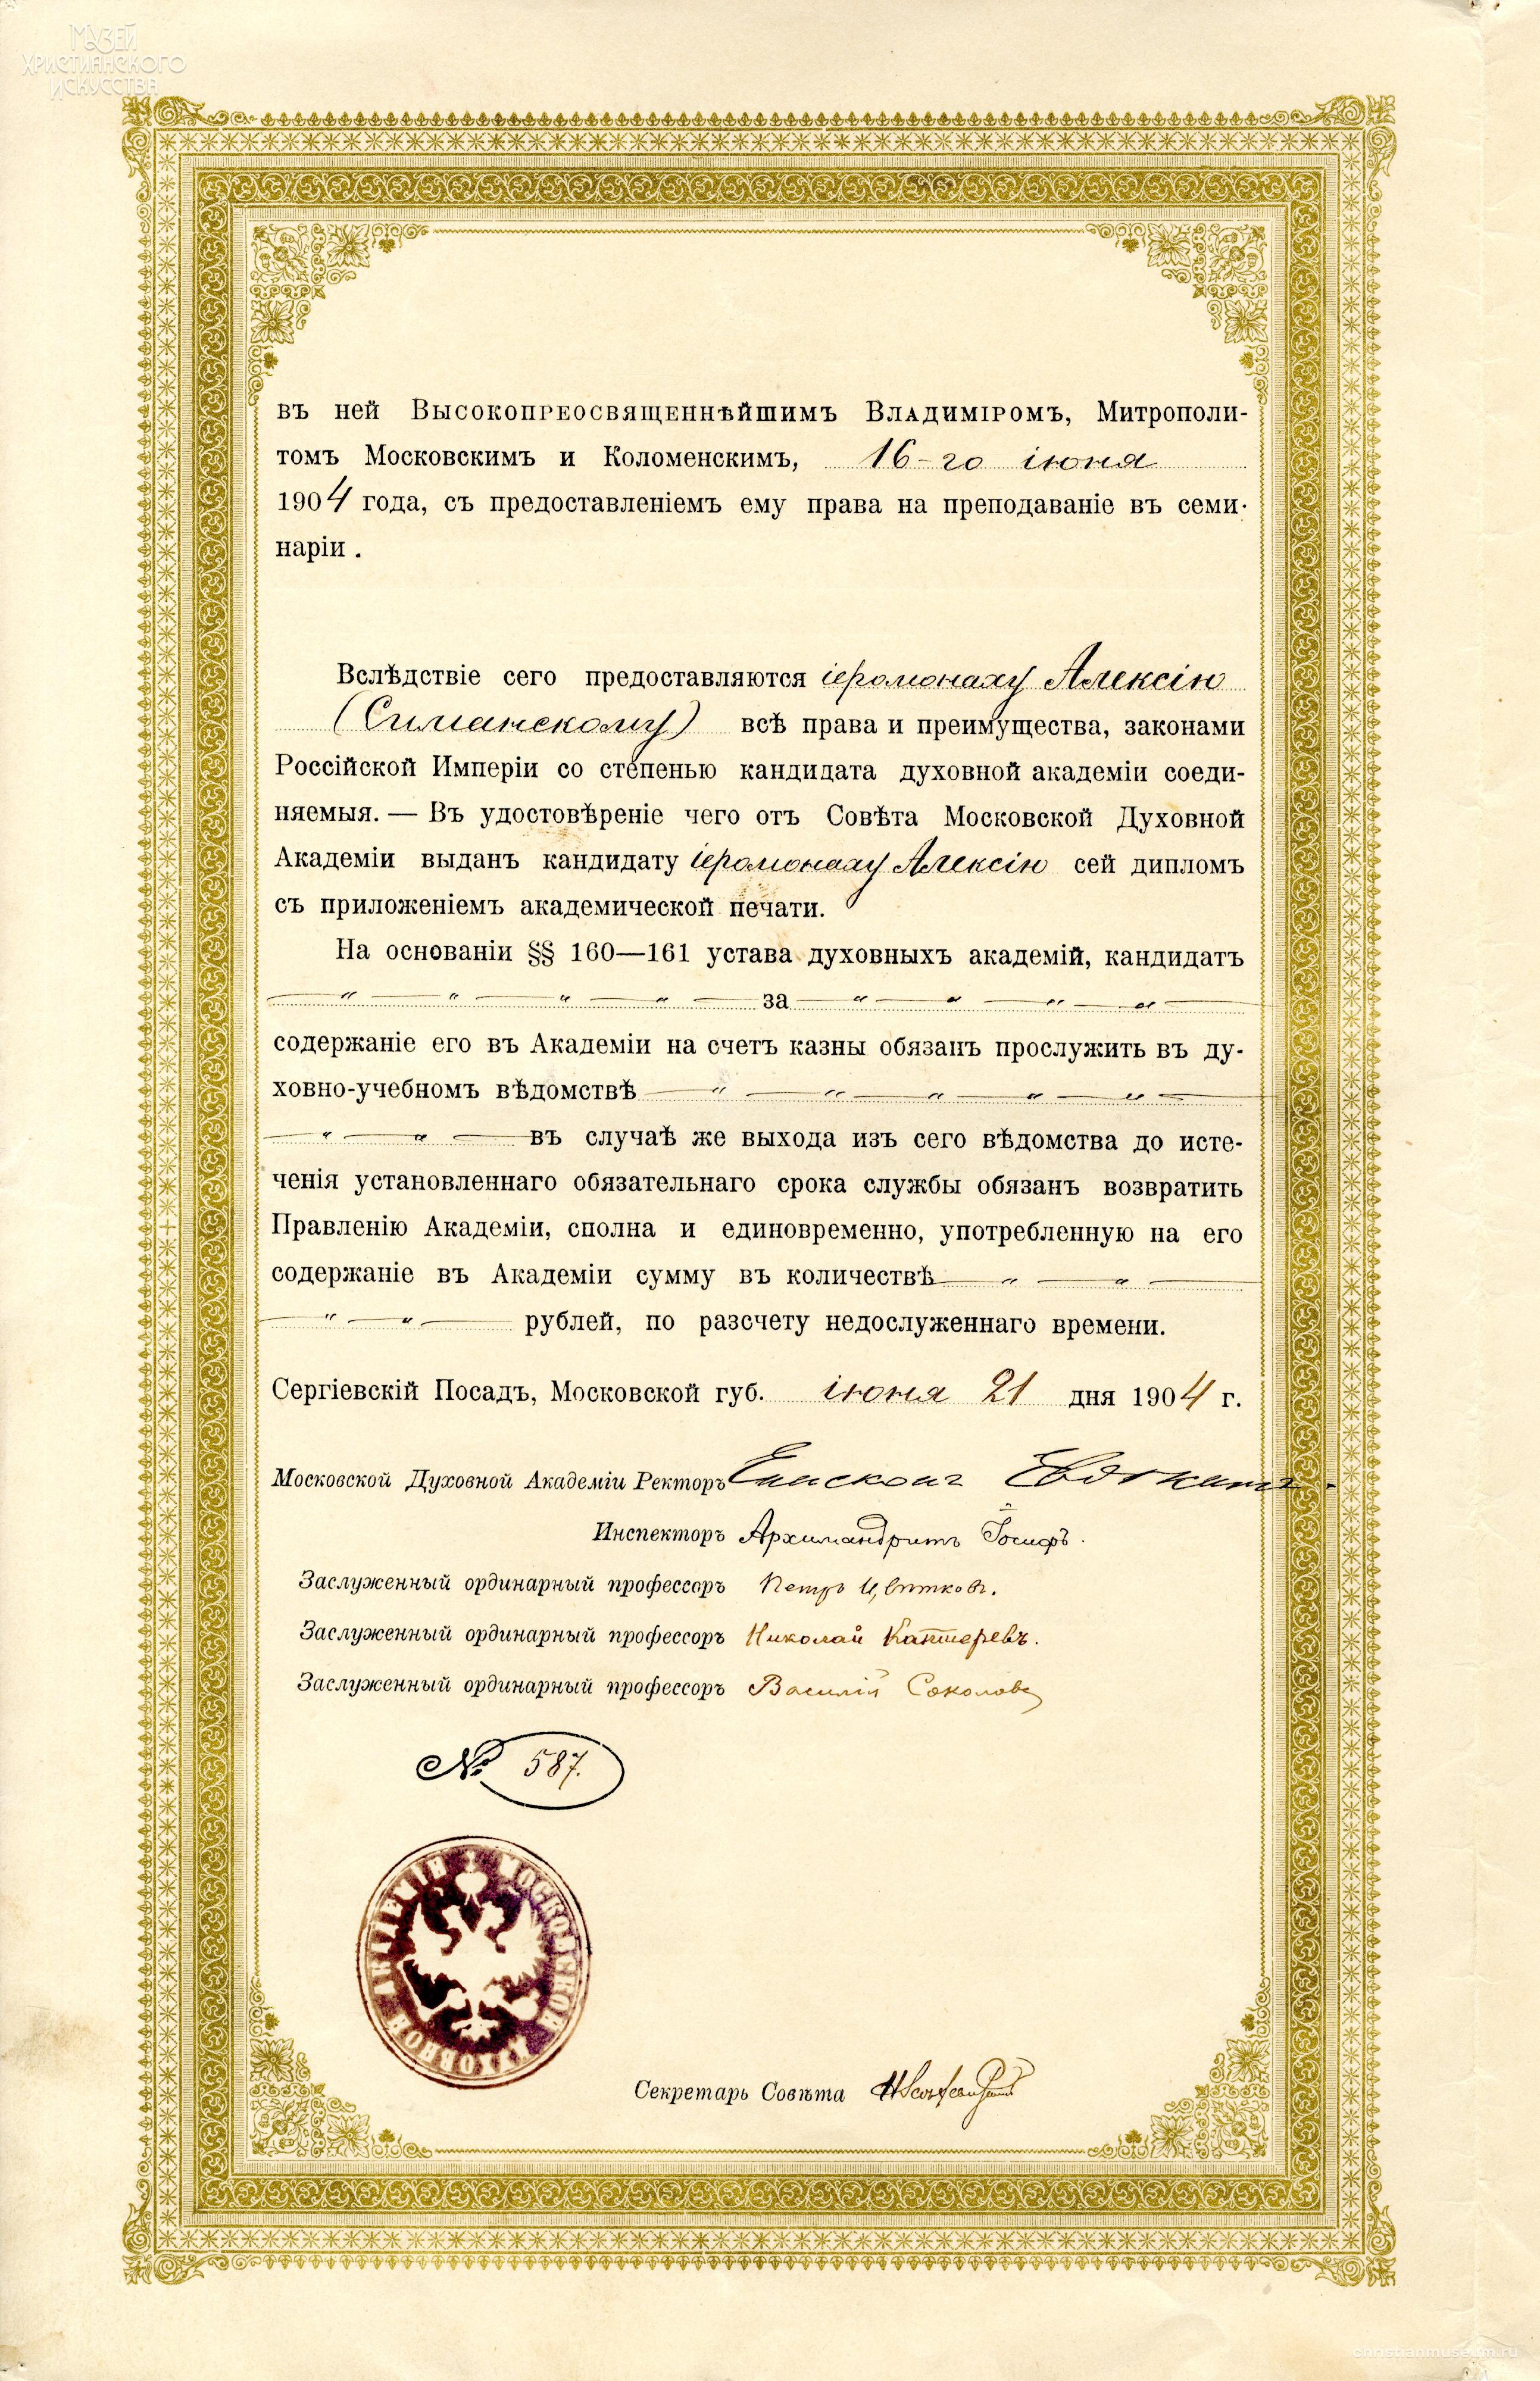 МУЗЕЙ
ХРИСТИАНСКОГО
ИСКУССТВА
въ ней Высокопреосвященнѣйшимъ Владиміромъ, Митрополи-
томъ Московскимъ и Коломенскимъ, 16-го іюня
1904 года, съ предоставленіемъ ему права на преподаваніе въ семи-
наріи.
Вслѣдствіе сего предоставляются іеромонаху Алексію
(Симанскому) всѣ права и преимущества, законами
Россійской Имперіи со степенью кандидата духовной академіи соеди-
няемыя. — Въ удостовѣреніе чего отъ Совѣта Московской Духовной
Академіи выданъ кандидату іеромонаху Алексію сей дипломъ
съ приложеніемъ академической печати.
На основаніи §§ 160—161 устава духовныхъ академій, кандидатъ
— „ — „ — „ — „ — за — „ — „ — „ — „ —
содержаніе его въ Академіи на счетъ казны обязанъ прослужить въ ду-
ховно-учебномъ вѣдомствѣ — „ — „ — „ — „ — „ —
— „ — „ — въ случаѣ же выхода изъ сего вѣдомства до исте-
ченія установленнаго обязательнаго срока службы обязанъ возвратить
Правленію Академіи, сполна и единовременно, употребленную на его
содержаніе въ Академіи сумму въ количествѣ — „ — „ —
— „ — „ — рублей, по разсчету недослуженнаго времени.
Сергіевскій Посадъ, Московской губ. іюня 21 дня 1904 г.
Московской Духовной Академіи Ректоръ Епископъ Евдокимъ.
Инспекторъ Архимандритъ Іосифъ.
Заслуженный ординарный профессоръ Петръ Цвѣтковъ.
Заслуженный ординарный профессоръ Николай Каптеревъ.
Заслуженный ординарный профессоръ Василій Соколовъ
№ 587.
МОСКОВСКОЙ ДУХОВНОЙ АКАДЕМІИ
Секретарь Совѣта
christianmuseum.ru